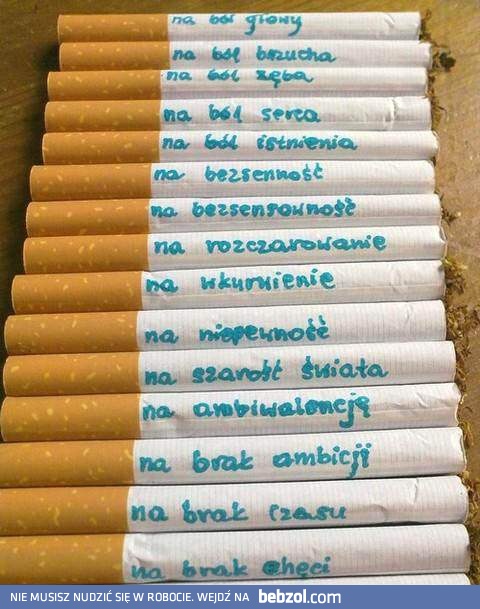 na ból głowy
na ból brzucha
na ból zęba
na ból serca
na ból istnienia
na bezsenność
na bezsensowność
na rozczarowanie
na wkurwienie
na niepewność
na szarość świata
na ambiwalencję
na brak ambicji
na brak czasu
na brak chęci
NIE MUSISZ NUDZIĆ SIĘ W ROBOCIE. WEJDŹ NA bebzol.com